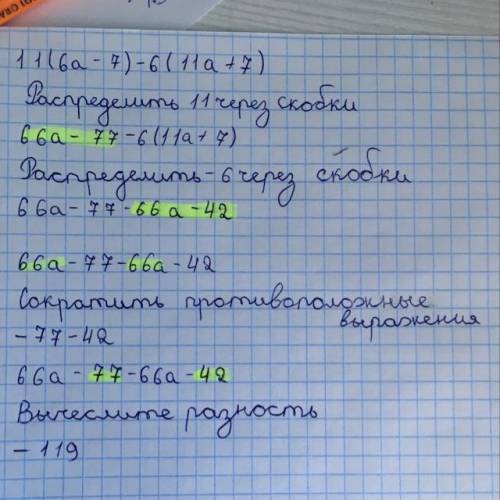 11(6a-7)-6(11a+7)
Распределить 11 через скобки
66a-77-6(11a+7)
Распределить-6 через скобки
66a-77-66a-42
66a-77-66a-42
Сократить противоположные
выражения
-77-42
66a-77-66a-42
Вычеслите разность
-119